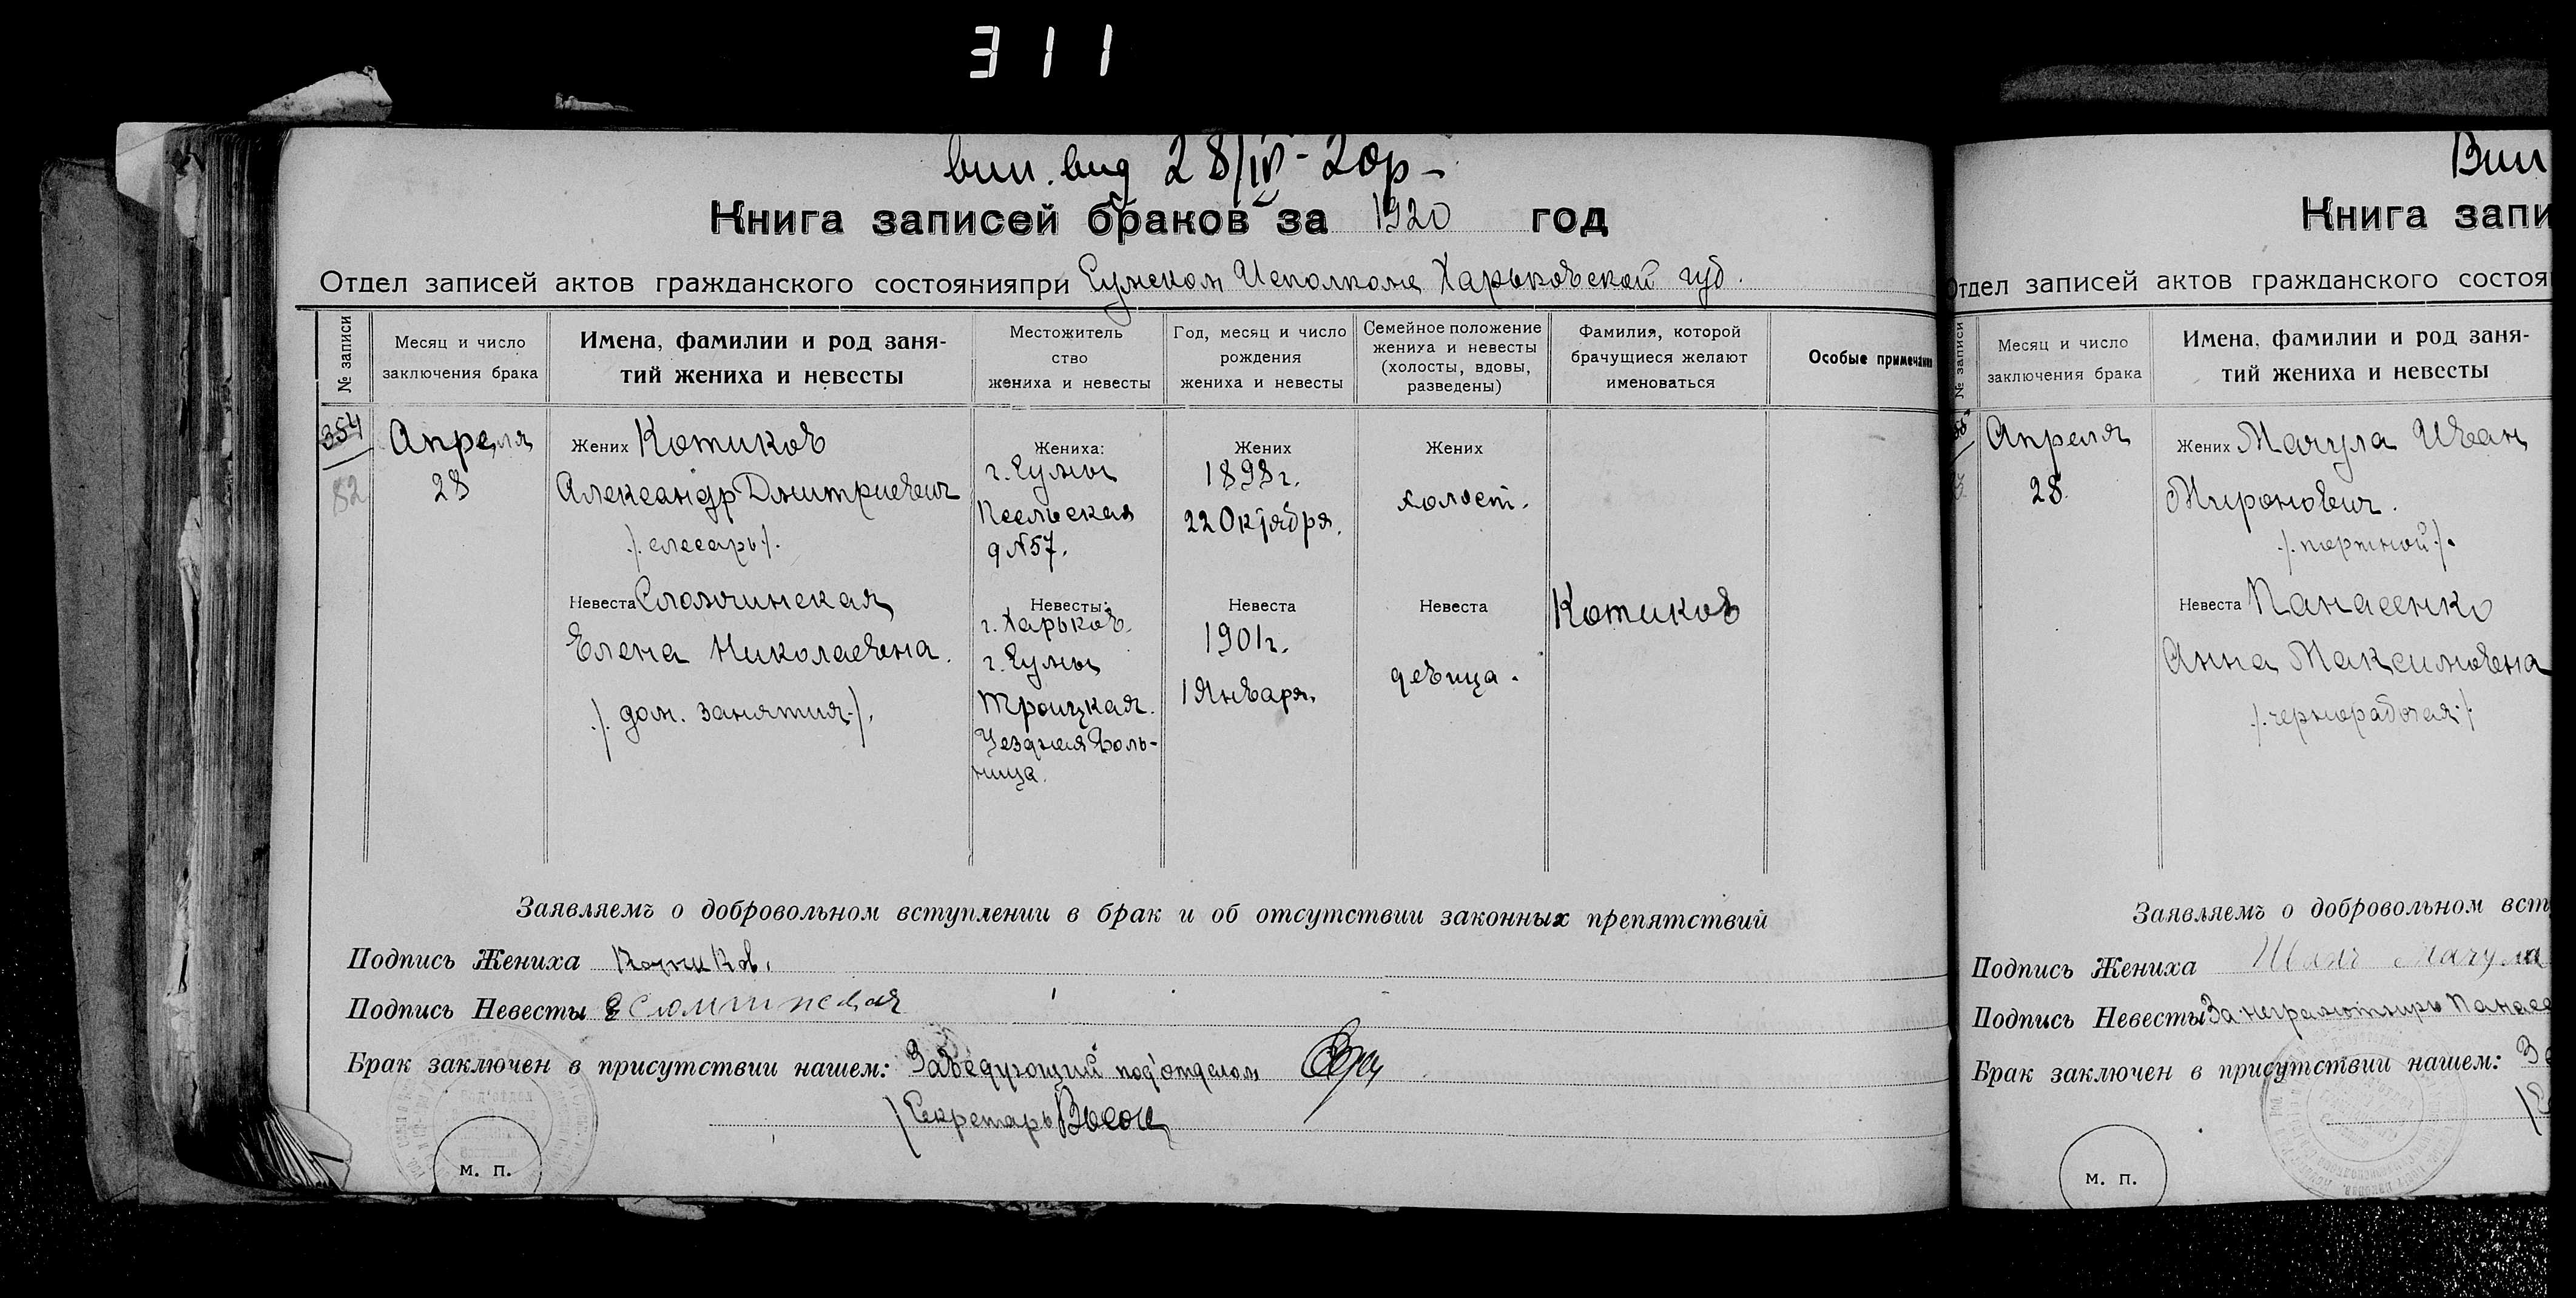 311
вип. вид 28/IV-20р-
Книга записей браков за 1920 год
Отдел записей актов гражданского состояния при Сумском Исполкоме Харьковской губ.
№ записи
Месяц и число заключения брака
Имена, фамилии и род занятий жениха и невесты
Местожительство жениха и невесты
Год, месяц и число рождения жениха и невесты
Семейное положение жениха и невесты (холосты, вдовы, разведены)
Фамилия, которой брачущиеся желают именоваться
Особые примечания
354
82
Апреля
28
Жених Котиков
Александр Дмитриевич
/. слесарь /.
Невеста Сломчинская
Елена Николаевна.
/. дом. занятия /.
Жениха:
г. Сумы
Псельская
д №57.
Невесты:
г. Харьков.
г. Сумы
Троицкая.
Уездная Боль-
ница.
Жених
1898г.
22 Октября.
Невеста
1901г.
1 Января.
Жених
холост.
Невеста
девица.
Котиков
Заявляемъ о добровольном вступлении в брак и об отсутствии законных препятствий
Подпись Жениха Котиков.
Подпись Невесты Е Сломчинская
Брак заключен в присутствии нашем: Заведующий под'отделом
Секретарь
м. п.
Вип
Книга запи
Отдел записей актов гражданского состоя
№ записи
Месяц и число заключения брака
Имена, фамилии и род занятий жениха и невесты
Апреля
28.
Жених Мачула Иван
Миронович.
/. портной /.
Невеста Панасенко
Анна Максимовна
/. чернорабочая /.
Заявляемъ о добровольном вст
Подпись Жениха Мачула
Подпись Невесты За неграмотную Панасе
Брак заключен в присутствии нашем: За
м. п.